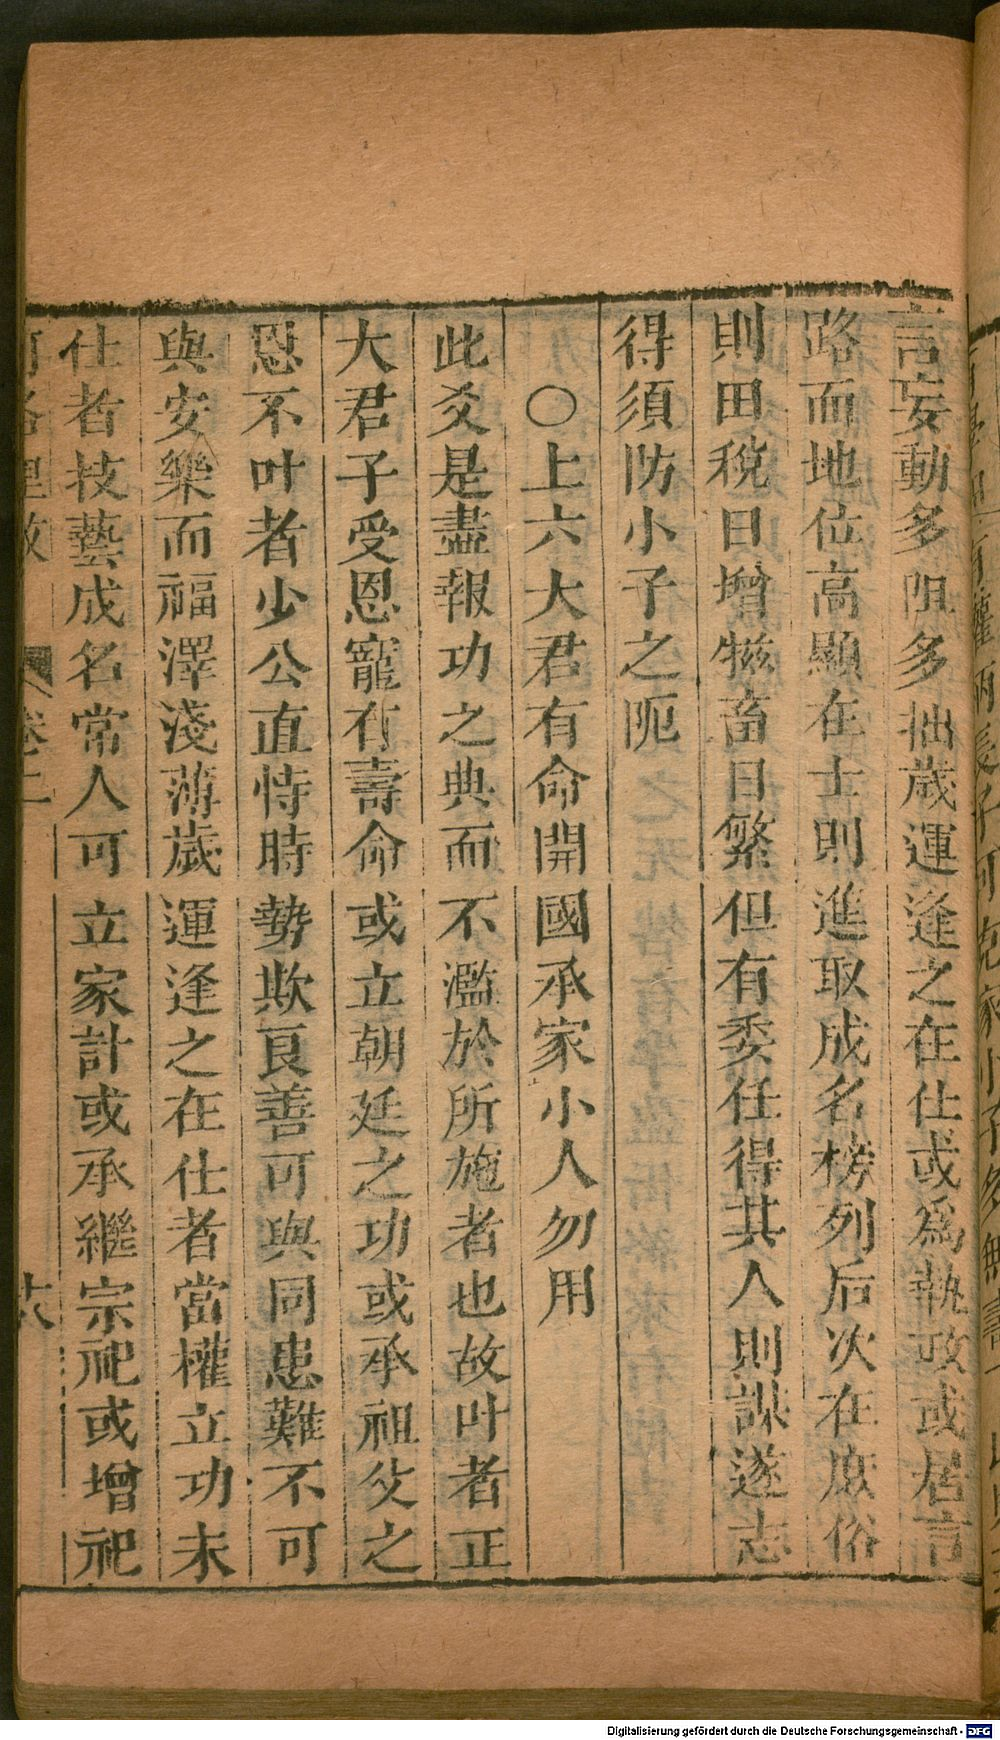 言妄動多阻多拙歲運逢之在仕或爲執政或居言
路而地位高顯在士則進取成名榜列后次在庶俗
則田稅日增牸畜日繁但有委任得其人則謀遂志
得須防小子之阨
○上六大君有命開國承家小人勿用
此爻是盡報功之典而不濫於所施者也故叶者正
大君子受恩寵有壽命或立朝廷之功或承祖父之
恩不叶者少公直恃時勢欺良善可與同患難不可
與安樂而福澤淺薄歲運逢之在仕者當權立功未
仕者技藝成名常人可立家計或承繼宗祀或增祀
卷二
Digitalisierung gefördert durch die Deutsche Forschungsgemeinschaft - DFG